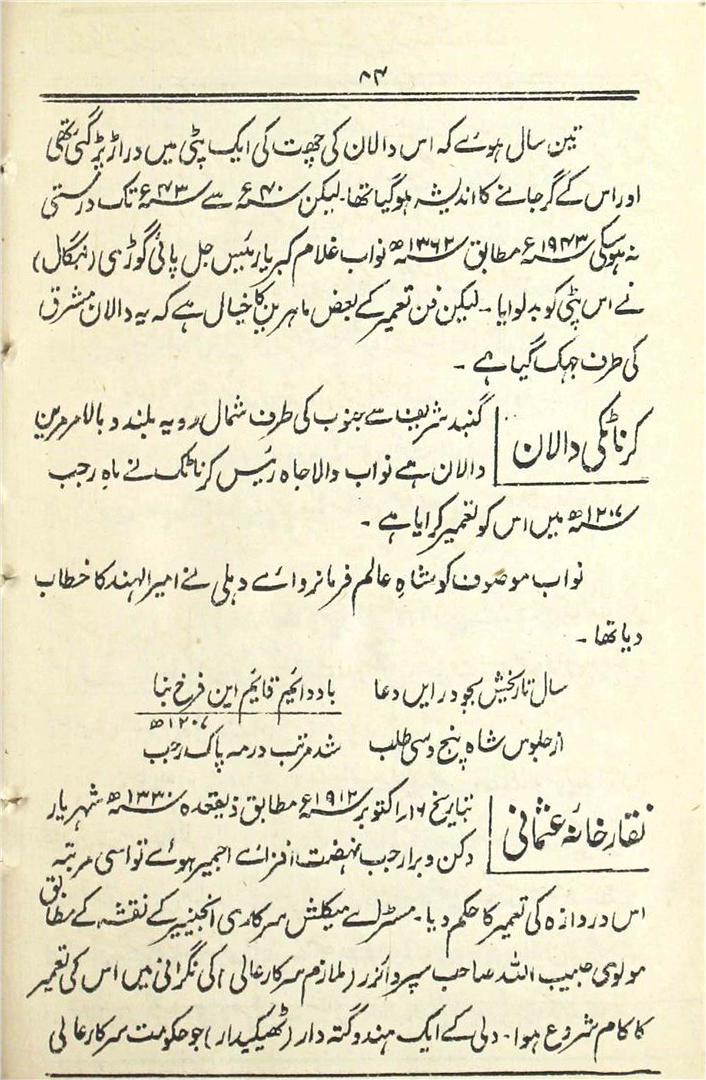 ۸۴
تین سال ہوئے کہ اس دالان کی چھت کی ایک پٹی میں دراڑ پڑ گئی تھی
اور اس کے گر جانے کا اندیشہ ہو گیا تھا۔ لیکن ۴۰ء سے ۴۳ء تک درستی
نہ ہو سکی ۱۹۴۳ء مطابق ۱۳۶۲ھ نواب غلام کبر یار رئیس جل پائی گوڑی (بنگال)
نے اس پٹی کو بدلوایا۔ لیکن فن تعمیر کے بعض ماہرین کا خیال ہے کہ یہ دالان مشرق
کی طرف جہک گیا ہے۔
کرناٹکی دالان
گنبد شریف سے جنوب کی طرف شمال رویہ بلند و بالا مرمرین
دالان ہے نواب والا جاہ رئیس کرناٹک نے ماہ رجب
۱۲۰۷ھ میں اس کو تعمیر کرایا ہے۔
نواب موصوف کو شاہِ عالم فرمانروائے دہلی نے امیر الہند کا خطاب
دیا تھا۔
سال تاریخش بجو در ایں دعا باد دائم قایم این فرخ بنا
۱۲۰۷ھ
از جلوس شاہ پنج و سی طلب شد مرتب در مہ پاک رجب
نقار خانہ عثمانی
بتاریخ ۱۶ اکتوبر ۱۹۱۲ء مطابق ذیقعدہ ۱۳۳۰ھ شہر یار
دکن و برار جب نہضت افزائے اجمیر ہوئے تو اسی مرتبہ
اس دروازہ کی تعمیر کا حکم دیا۔ مسٹر اے میکلش سرکاری انجینیر کے نقشہ کے مطابق
مولوی حبیب اللہ صاحب سپروائزر (ملازم سرکار عالی) کی نگرانی میں اس کی تعمیر
کا کام شروع ہوا۔ دلی کے ایک ہندو گتہ دار (ٹھیکیدار) جو حکومت سرکار عالی